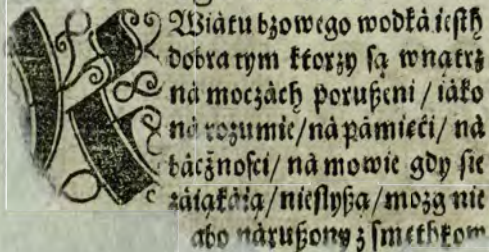 KWiátu bzowego wodká iesth
dobra tym ktorzy są wnątrz
ná moczách porußeni / iáko
ná rozumie / ná pámieći / ná
báczności / ná mowie gdy sie
záiąkáią / niesłyßą / mozg nie
ábo nárußony z smethkow